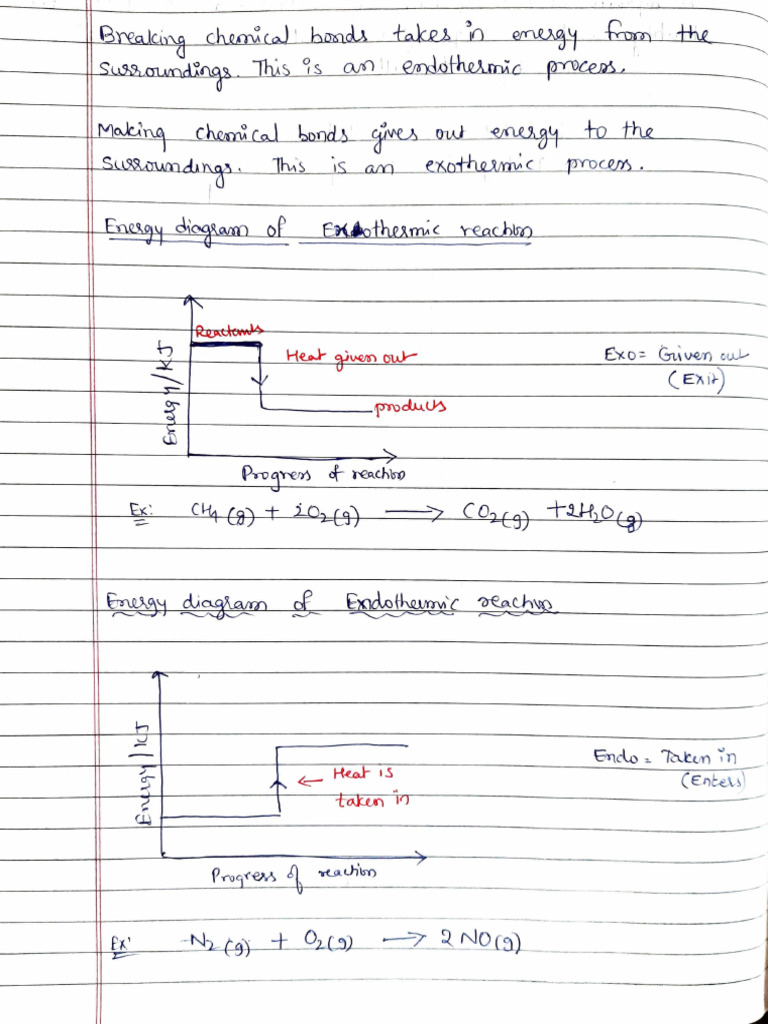 Breaking chemical bonds takes in energy from the
surroundings. This is an endothermic process.
Making chemical bonds gives out energy to the
surroundings. This is an exothermic process.
Energy diagram of Exothermic reaction
Reactants
Heat given out
Exo = Given out
(Exit)
products
Energy/KJ
Progress of reaction
Ex: CH4(g) + 2O2(g) → CO2(g) + 2H2O(g)
Energy diagram of Endothermic reaction
Energy/KJ
Heat is
taken in
Endo = Taken in
(Enters)
Progress of reaction
Ex: N2(g) + O2(g) → 2NO(g)